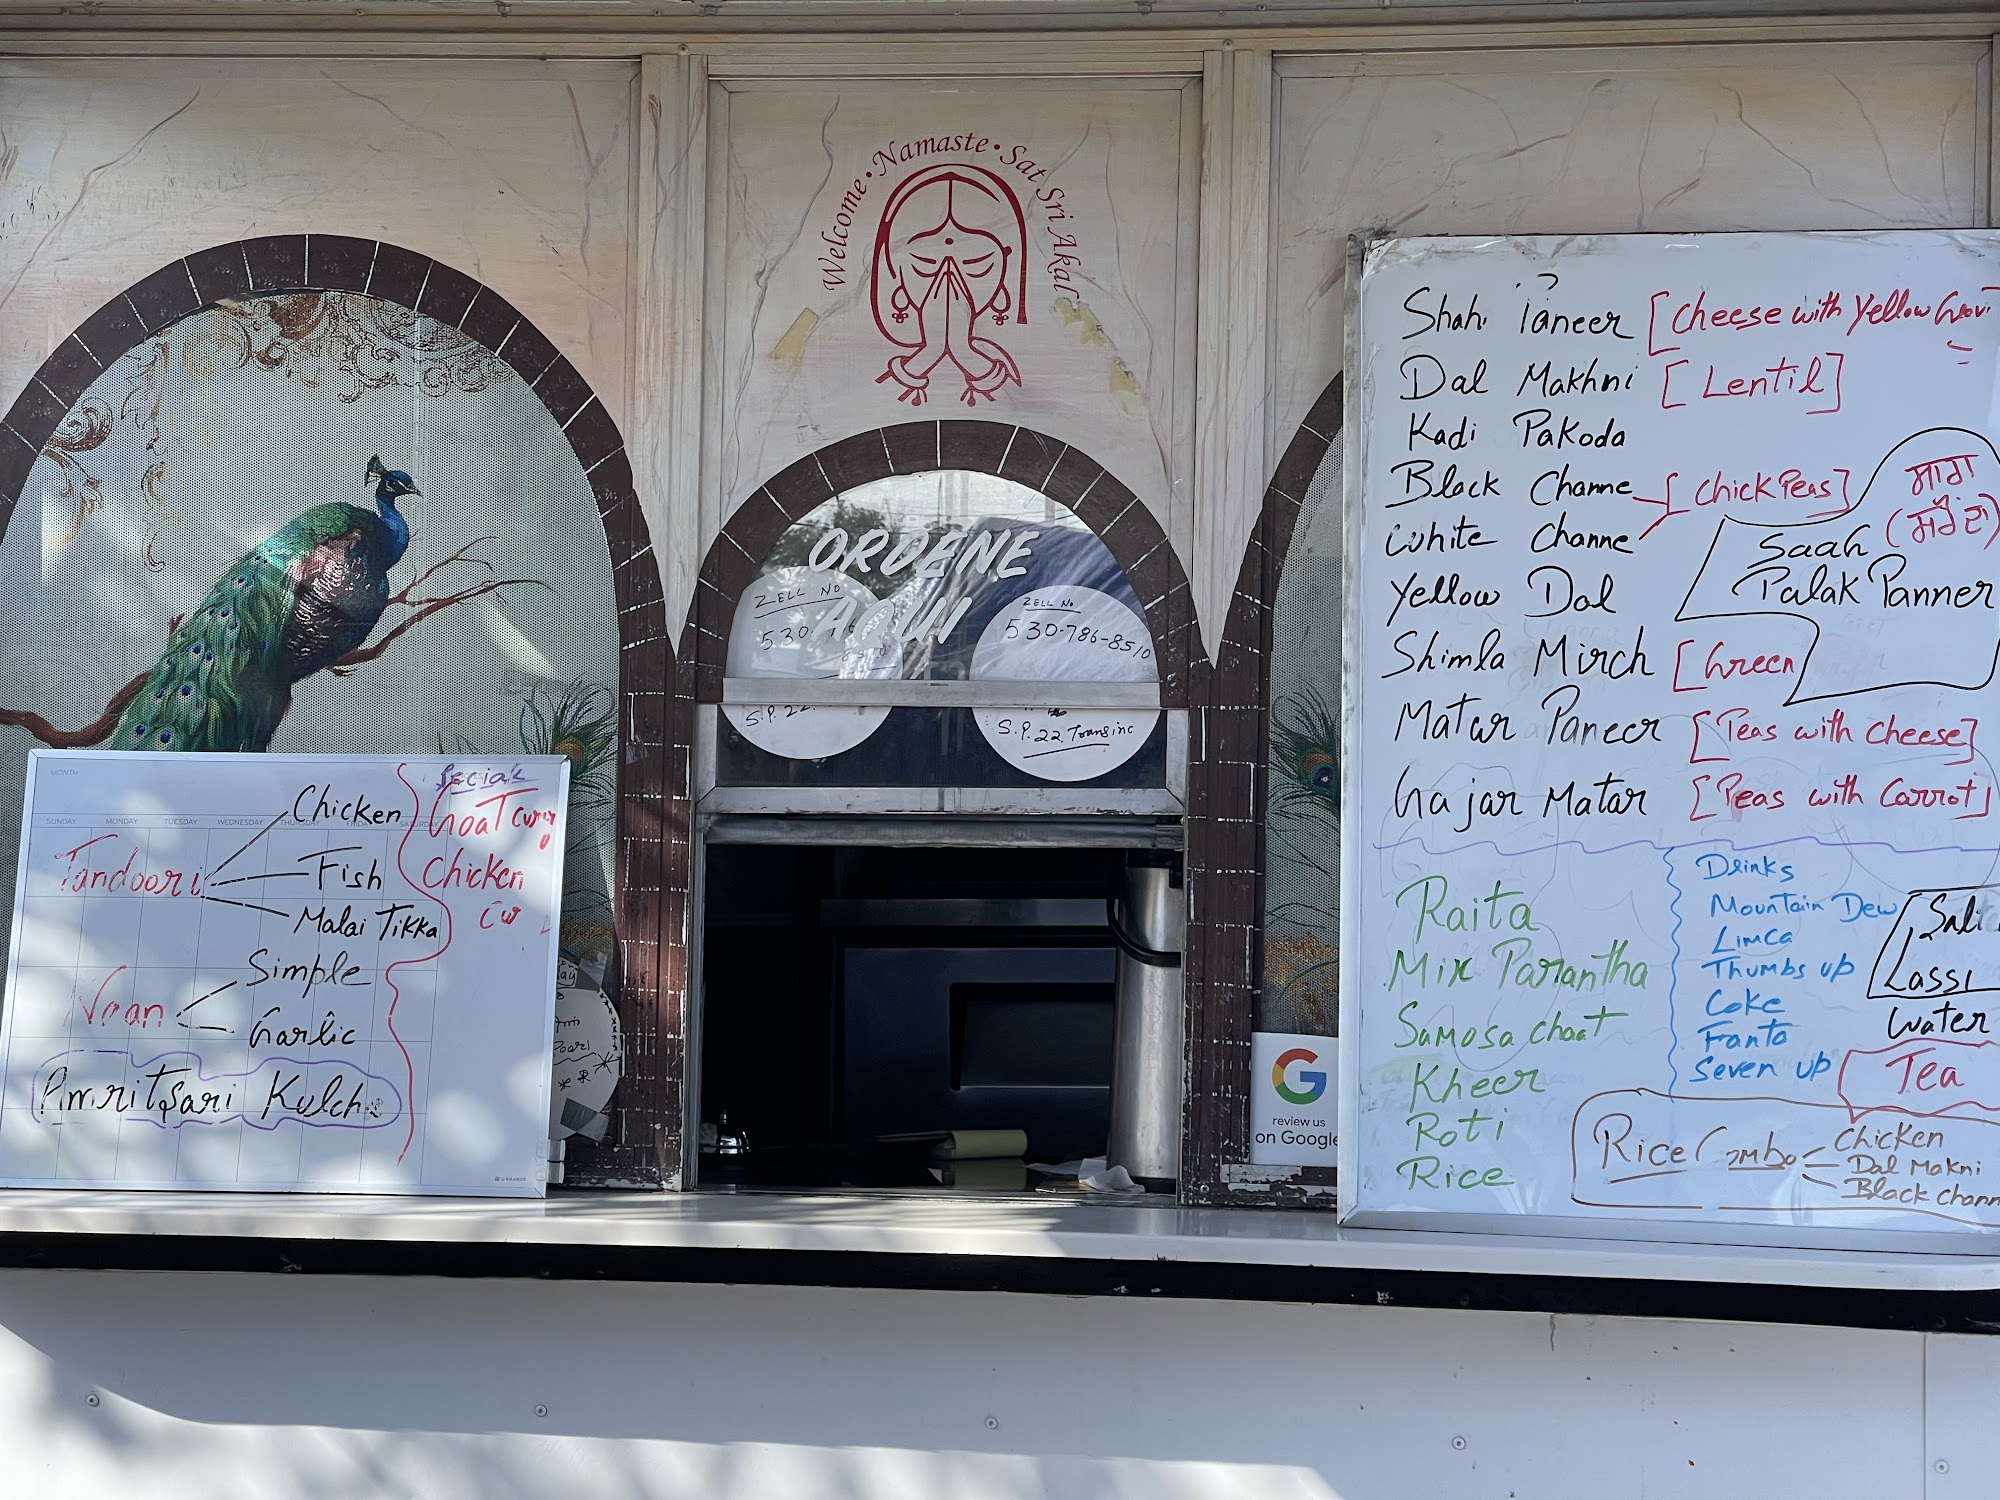 Welcome • Namaste • Sat Sri Akal
ORDENE
AQUI
ZELL NO
530
S.P. 22.
ZELL No.
530-786-8510
S.P. 22 Trans inc
MONTH
SUNDAY MONDAY TUESDAY WEDNESDAY THURSDAY FRIDAY SATURDAY
Tandoori
Chicken
Fish
Malai Tikka
Naan
Simple
Garlic
Amritsari Kulcha
Goat Curry
Chicken
U BRANDS
review us
on Google
Shahi Paneer [Cheese with Yellow
Dal Makhni [Lentil]
Kadi Pakoda
Black Channe [ChickPeas]
White Channe
Yellow Dal
Shimla Mirch [Green
Matar Paneer [Peas with Cheese]
Gajar Matar [Peas with Carrot]
ਸਾਗ
(ਸਰੋਂ ਦਾ)
Saag
Palak Panner
Raita
Mix Parantha
Samosa Chaat
Kheer
Roti
Rice
Drinks
Mountain Dew
Limca
Thumbs up
Coke
Fanta
Seven up
Lassi
Water
Tea
Rice Combo
Chicken
Dal Makni
Black Chann